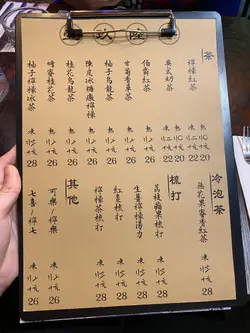 茶
檸檬紅茶 熱 20 凍 22
英式奶茶 熱 20 凍 22
伯爵紅茶 熱 26
甘菊香草茶 熱 26
柚子烏龍茶 熱 26
陳皮冰糖燉檸檬 熱 28
桂花烏龍茶 26
蜂蜜桂花茶 26
柚子檸檬冰茶 凍 28
冷泡茶
無花果蜜香紅茶 凍 28
梳打
荔枝蘋果梳打 凍 28
生薑檸檬湯力 凍 28
紅棗梳打 凍 28
檸檬梳打 凍 26
其他
可樂/檸樂 凍 26
七喜/檸七 凍 26